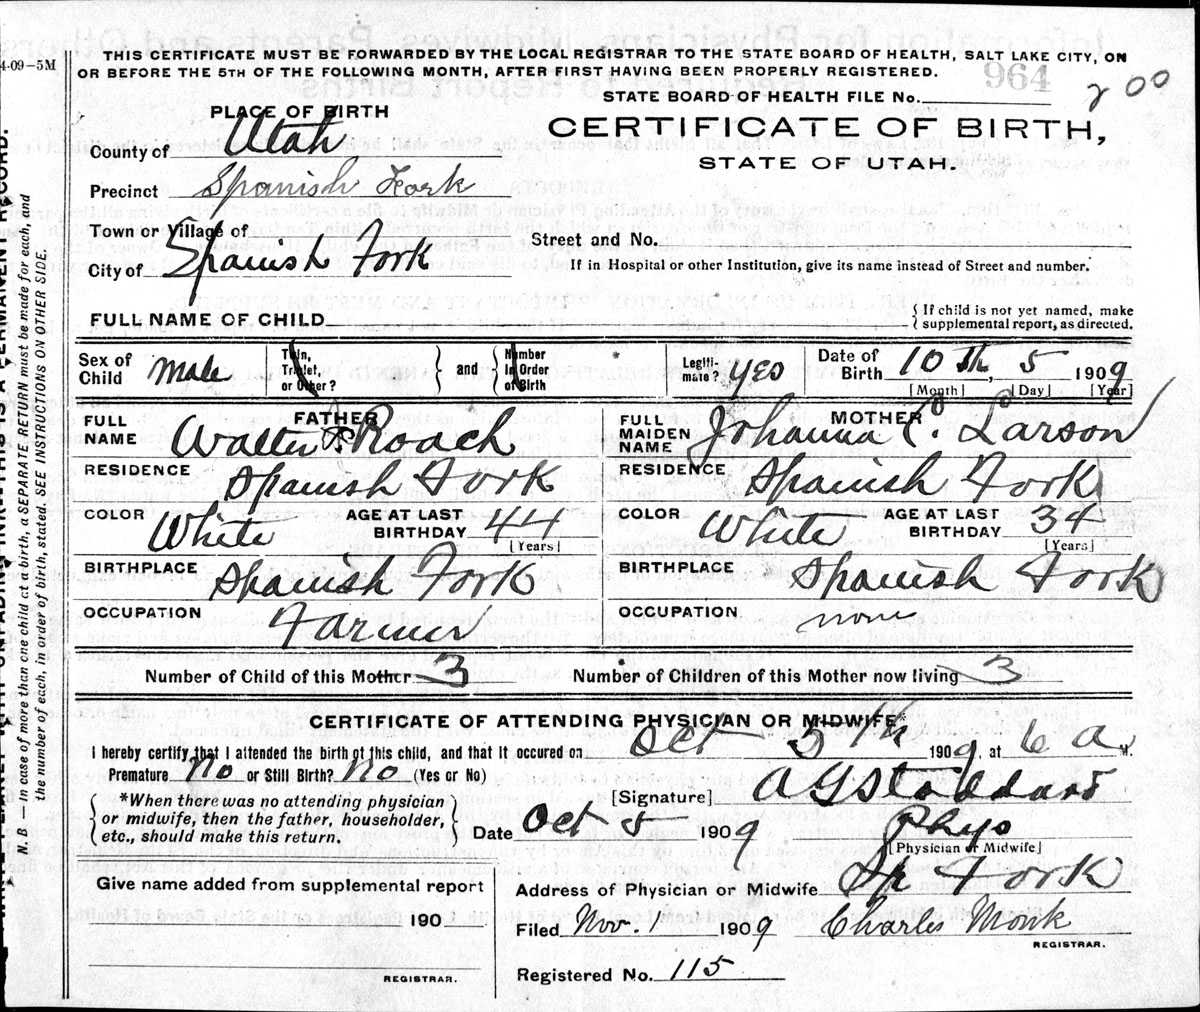 4-09-5M
THIS CERTIFICATE MUST BE FORWARDED BY THE LOCAL REGISTRAR TO THE STATE BOARD OF HEALTH, SALT LAKE CITY, ON
OR BEFORE THE 5TH OF THE FOLLOWING MONTH, AFTER FIRST HAVING BEEN PROPERLY REGISTERED.
964
200
STATE BOARD OF HEALTH FILE No.
PLACE OF BIRTH
CERTIFICATE OF BIRTH,
STATE OF UTAH.
County of Utah
Precinct Spanish Fork
Town or Village of
City of Spanish Fork
Street and No.
If in Hospital or other Institution, give its name instead of Street and number.
FULL NAME OF CHILD
{ If child is not yet named, make
supplemental report, as directed.
Sex of Child Male
Twin, Triplet, or Other? } and { Number In Order of Birth
Legitimate? yes
Date of Birth 10th, 5 1909
[Month] [Day] [Year]
FATHER
FULL NAME Walter Roach
RESIDENCE Spanish Fork
COLOR White AGE AT LAST BIRTHDAY 44
[Years]
BIRTHPLACE Spanish Fork
OCCUPATION Farmer
MOTHER
FULL MAIDEN NAME Johanna C. Larson
RESIDENCE Spanish Fork
COLOR White AGE AT LAST BIRTHDAY 34
[Years]
BIRTHPLACE Spanish Fork
OCCUPATION none
Number of Child of this Mother 3 Number of Children of this Mother now living 3
CERTIFICATE OF ATTENDING PHYSICIAN OR MIDWIFE*
I hereby certify that I attended the birth of this child, and that it occured on Oct 5th 1909, at 6 a. M.
Premature No or Still Birth? No (Yes or No)
{ *When there was no attending physician
or midwife, then the father, householder,
etc., should make this return. }
[Signature] A G Stoddard
Date Oct 5 1909 Phys
[Physician or Midwife]
Give name added from supplemental report
190
REGISTRAR.
Address of Physician or Midwife Sp Fork
Filed Nov. 1 1909 Charles Monk
REGISTRAR.
Registered No. 115
N. B.—In case of more than one child at a birth, a SEPARATE RETURN must be made for each, and
the number of each, in order of birth, stated. SEE INSTRUCTIONS ON OTHER SIDE.